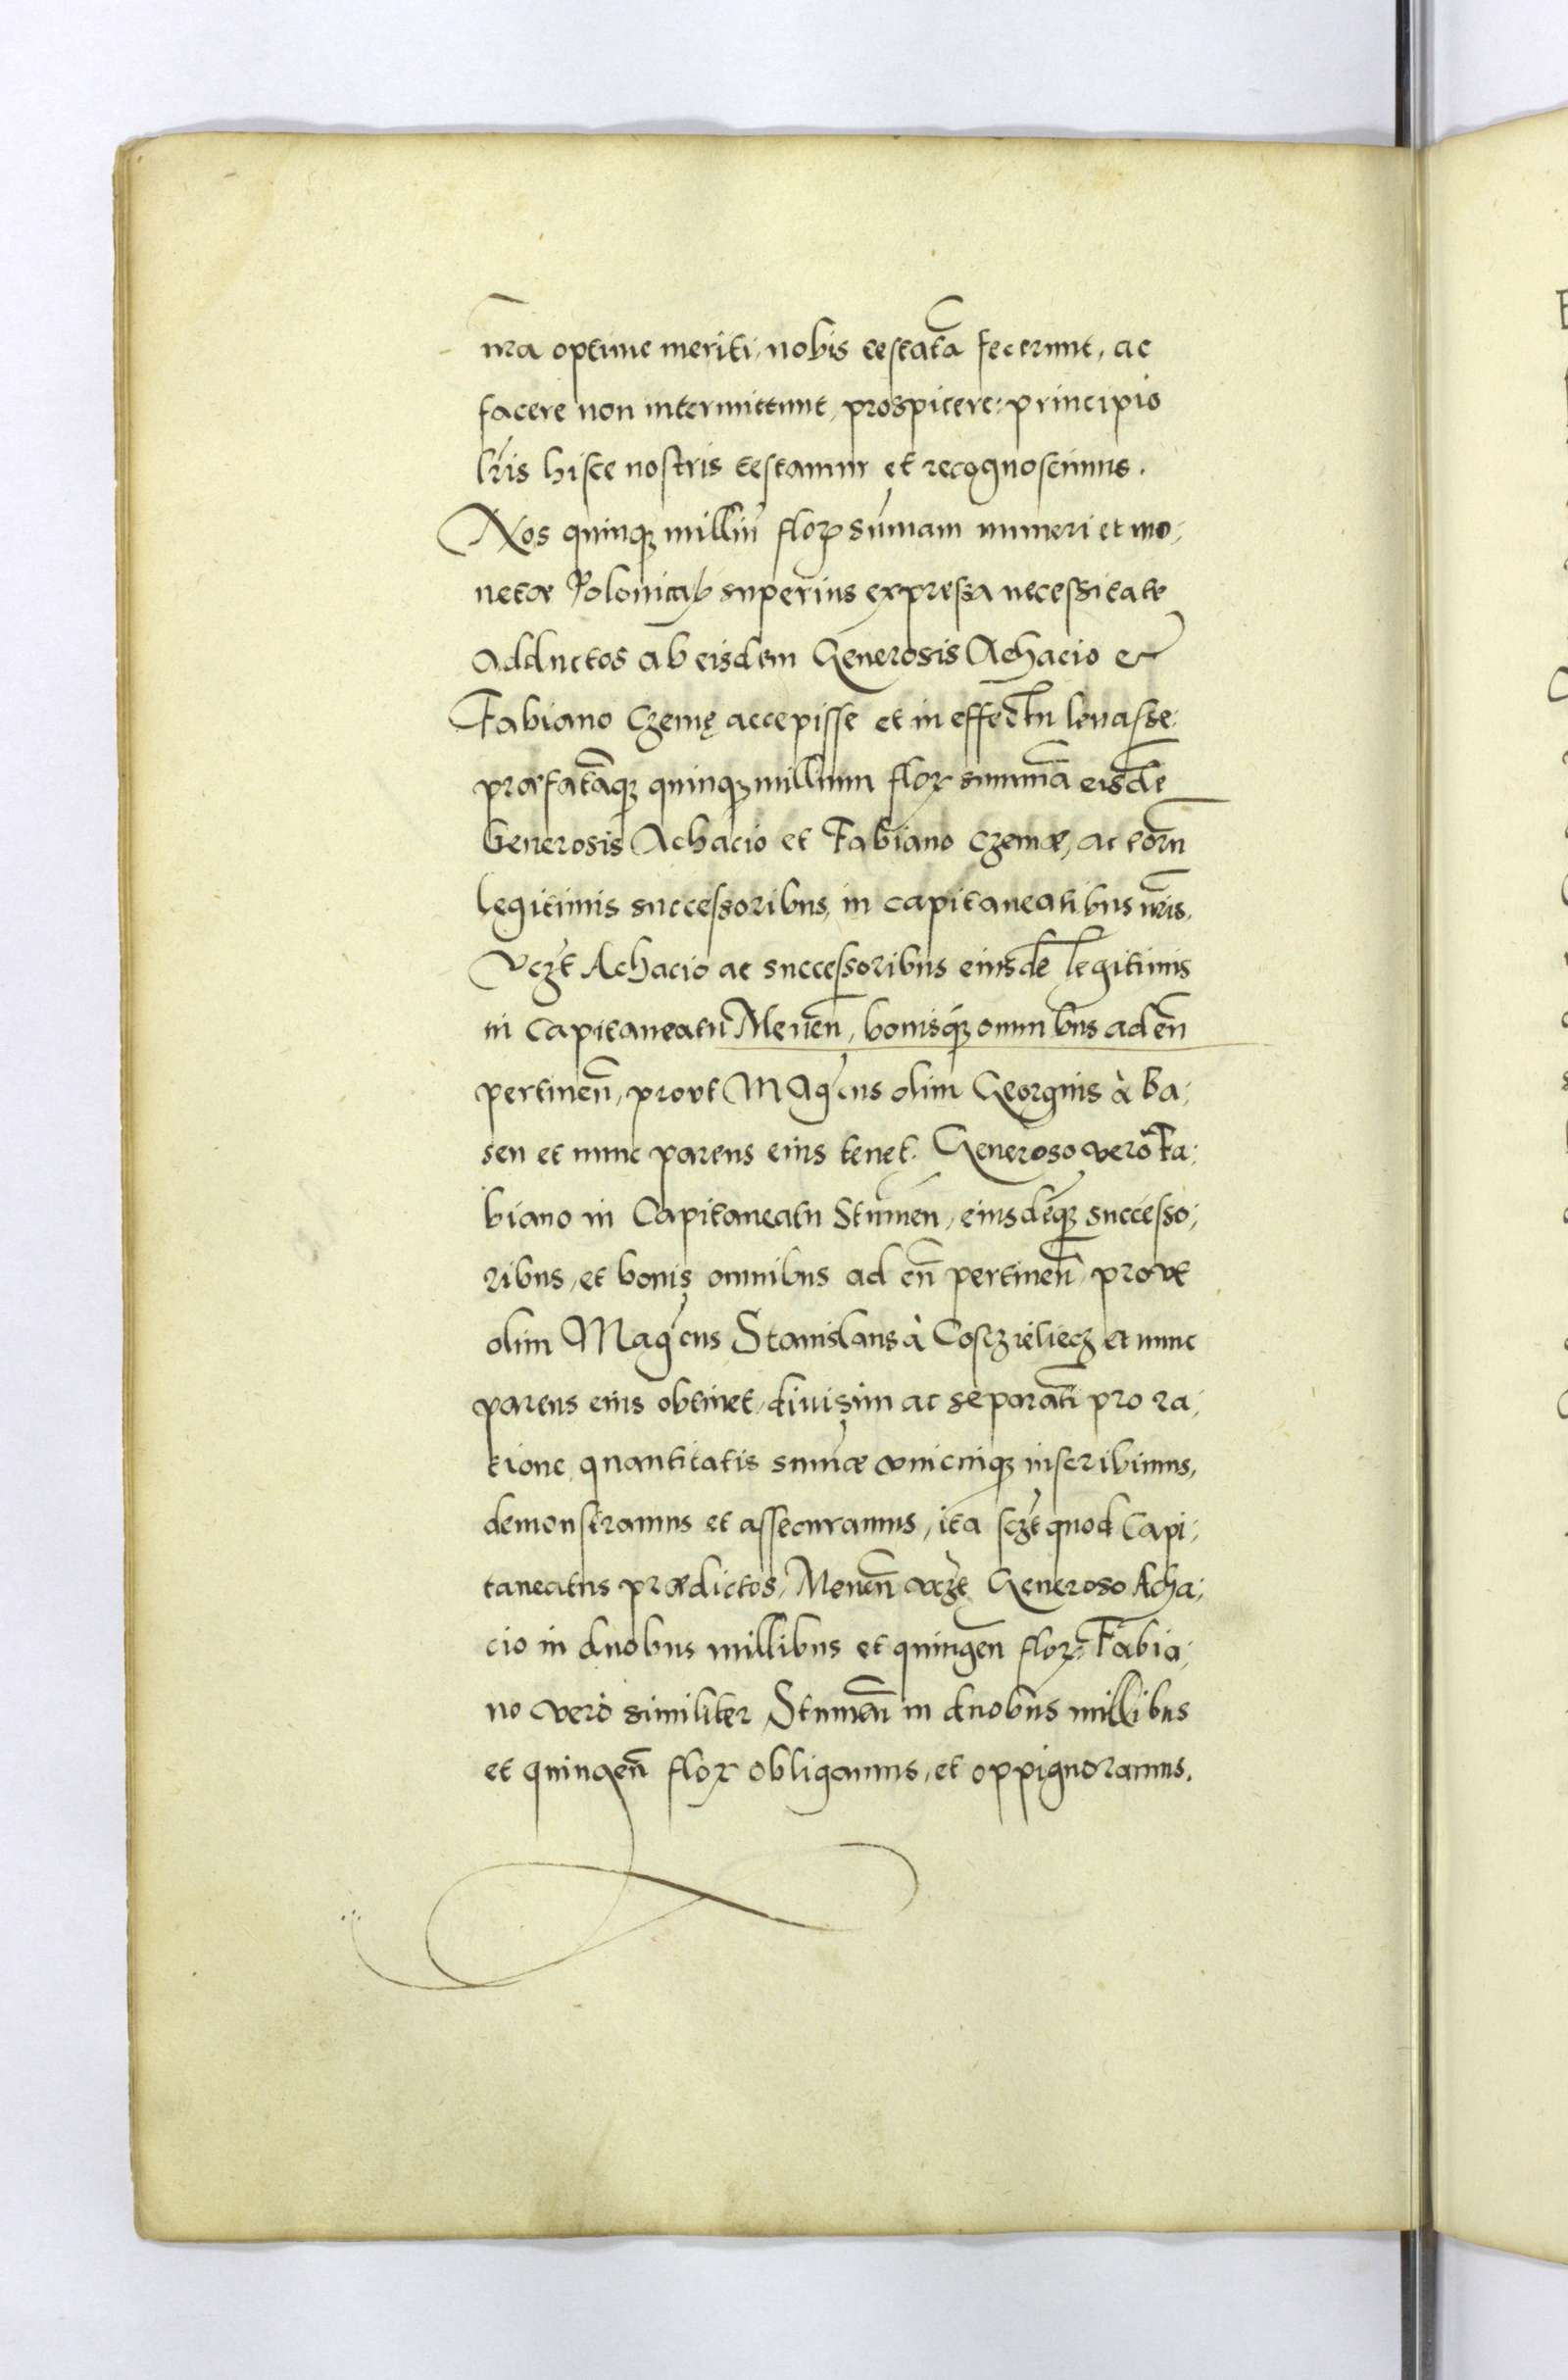 nr̃a optime meriti, nobis testatã fecerunt, ac
facere non intermittunt, prospicere: principio
lr̃is hisce nostris testamur et recognoscimus.
Nos quinqꝫ milliũ floꝝ sũmam numeri et mo:
netæ Polonicalis superius expressa necessitate
adductos ab eisdem Generosis Achacio et
Fabiano Czemę accepisse et in effectu leuasse:
præfatãqꝫ quinqꝫ millium floꝝ summã eisdẽ
Generosis Achacio et Fabiano Czemæ, ac eorũ
legitimis successoribus, in capitaneatibus nr̃is,
Vczt̃ Achacio ac successoribus eiusdẽ legitimis
in Capitaneatu Meueñ, bonisqꝫ omnibus ad eñ
pertineñ, prout Mag̃cus olim Georgius à Ba:
sen et nunc parens eius tenet. Generoso vero Fa:
biano in Capitaneatu Stumeñ, eiusdẽqꝫ successo:
ribus, et bonis omnibus ad eñ pertineñ, prout
olim Mag̃cus Stanislaus à Cosczieliecz et nunc
parens eius obtinet, diuisim ac separatĩ pro ra:
tione quantitatis sum̃æ vnicuiqꝫ inscribimus,
demonstramus et assecuramus, ita sczt̃ quod Capi:
taneatus prædictos, Meueñ vczt̃ Generoso Acha:
cio in duobus millibus et quingeñ floꝝ, Fabia:
no verò similiter Stumeñ in duobus millibus
et quingeñ floꝝ obligamus, et oppignoramus.